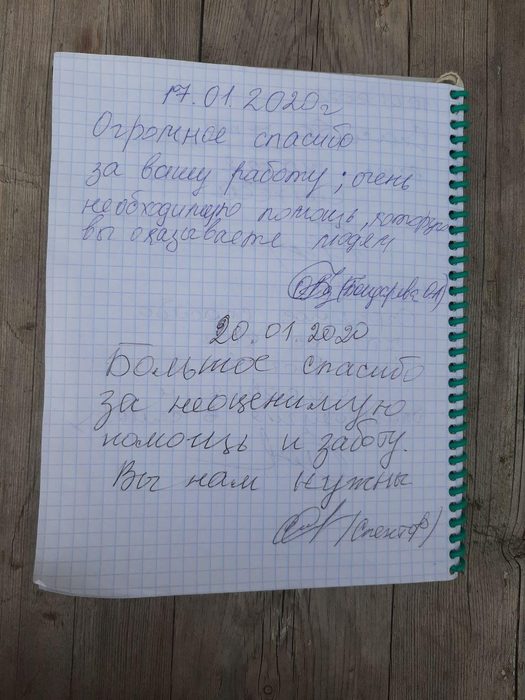 17.01.2020г
Огромное спасибо
за вашу работу; очень
необходимую помощь, которую
вы оказываете людям
(Бондарева О.А)
20.01.2020
Большое спасибо
за неоценимую
помощь и заботу.
Вы нам нужны
(Спектор)